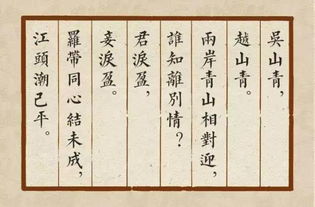 吳山青，
越山青。
兩岸青山相對迎，
誰知離別情？
君淚盈，
妾淚盈。
羅帶同心結未成，
江頭潮已平。